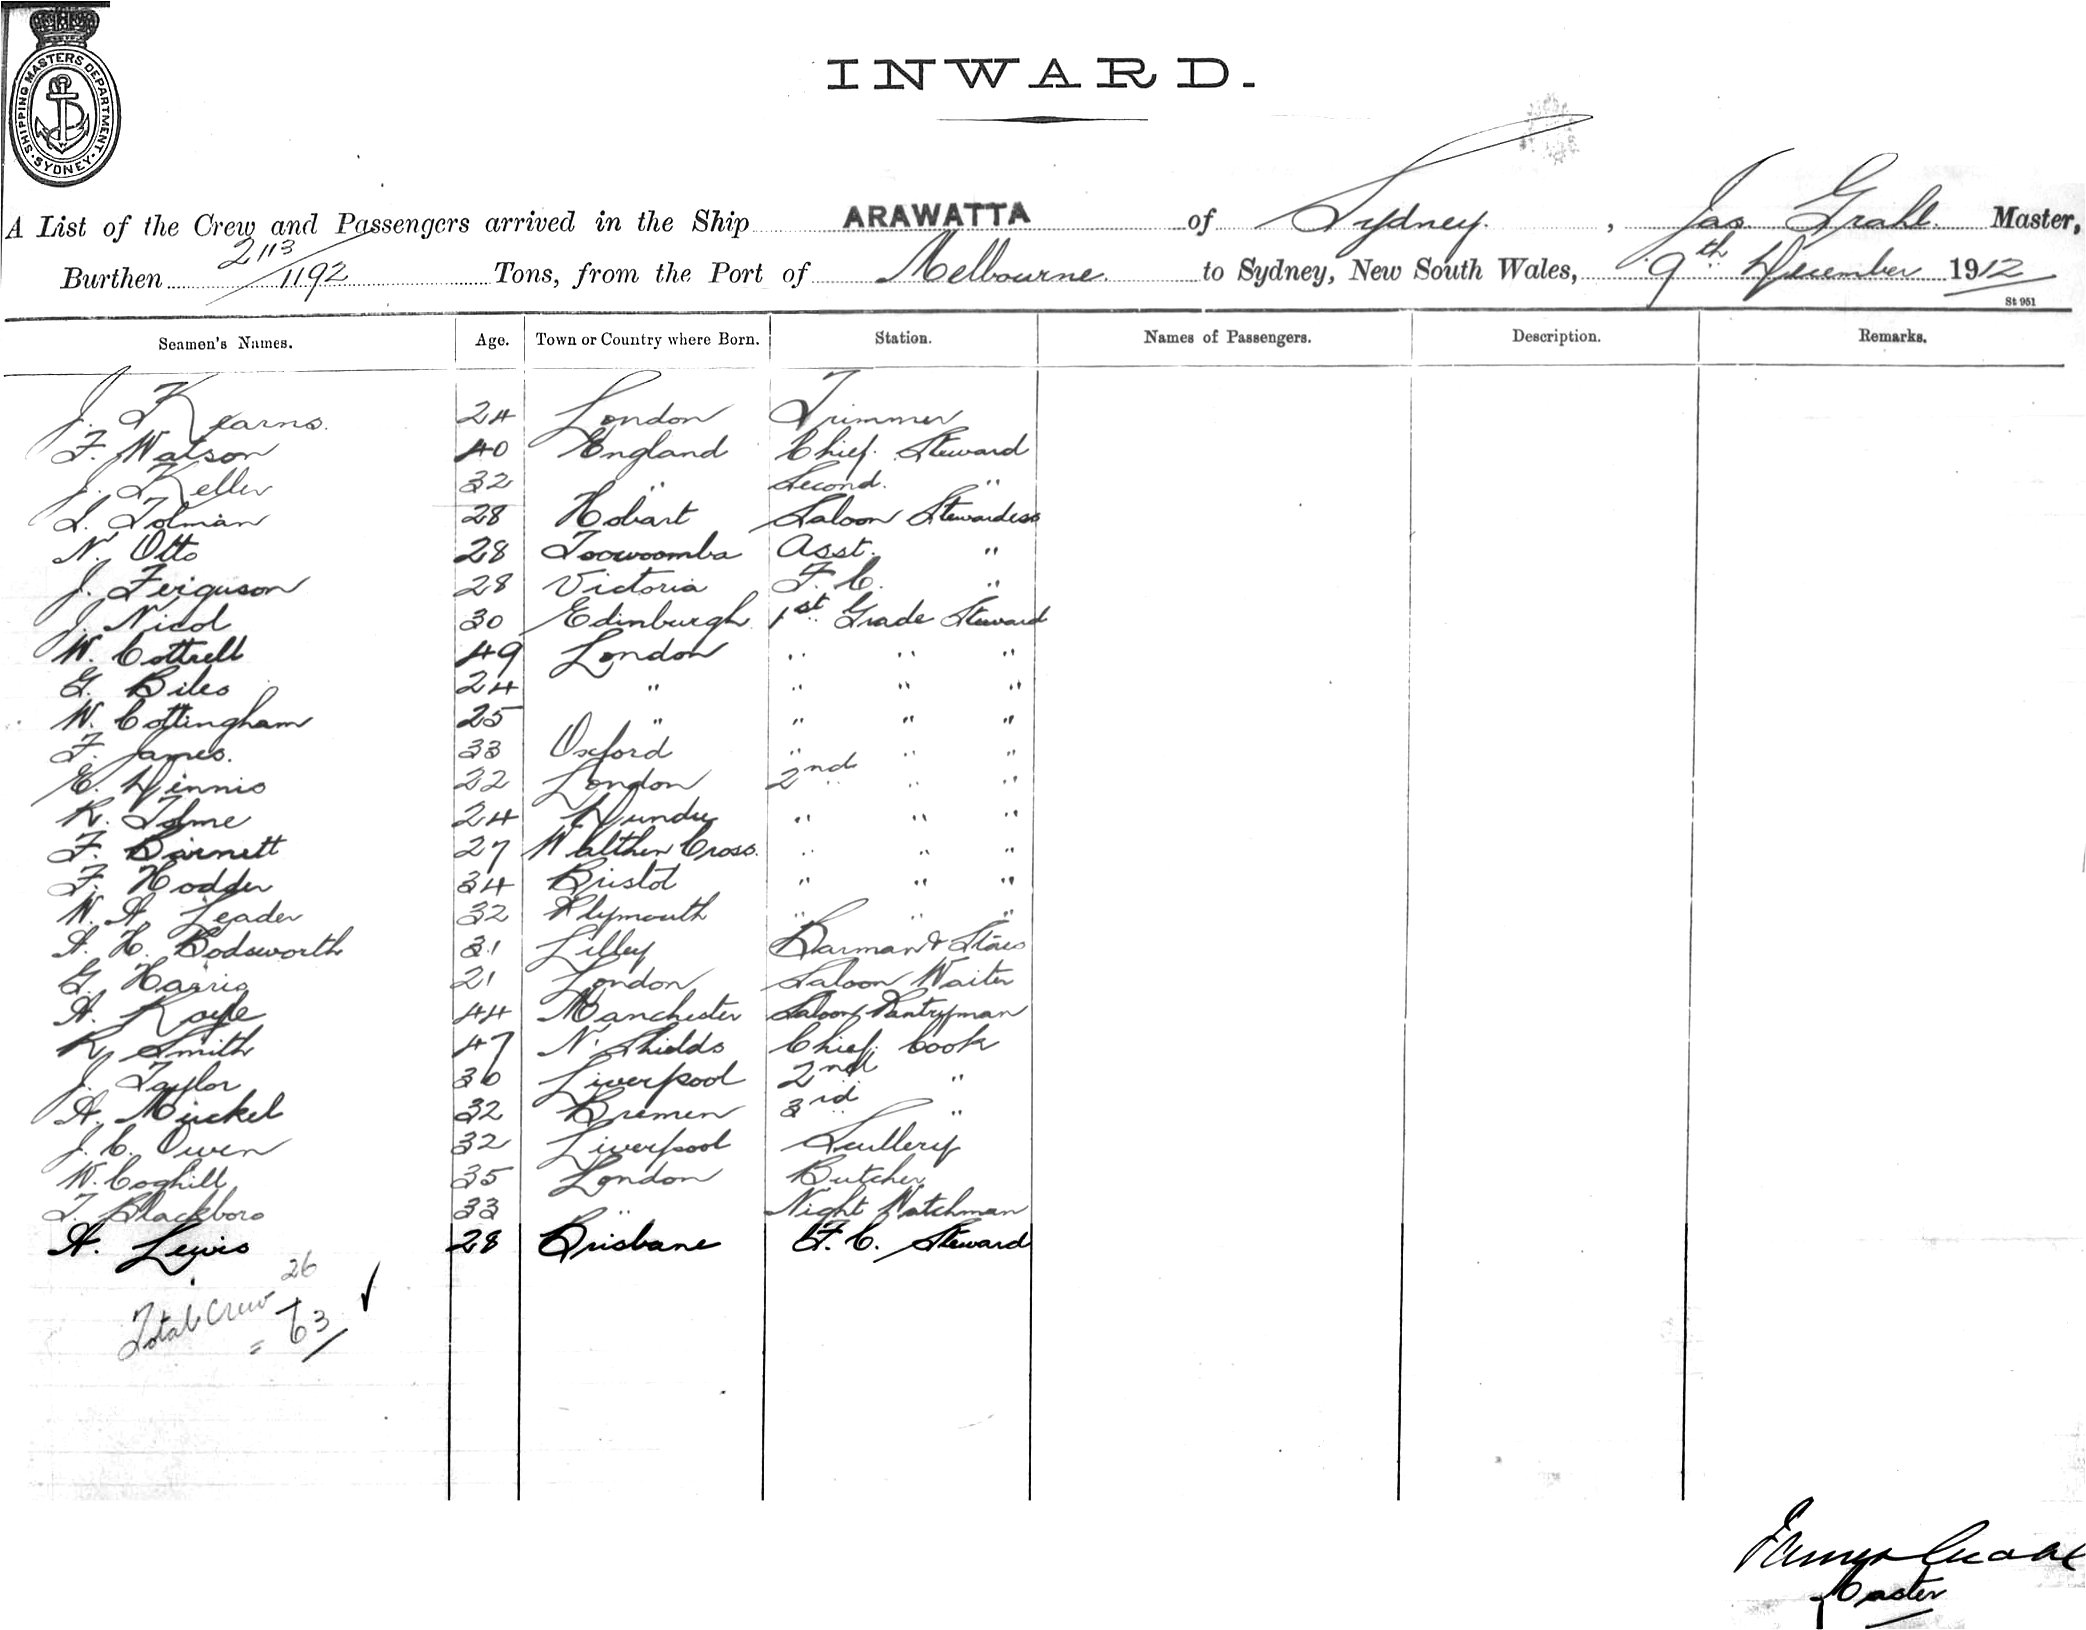 SHIPPING MASTERS DEPARTMENT. SYDNEY
INWARD.
A List of the Crew and Passengers arrived in the Ship ARAWATTA of Sydney. , Jas Grahl. Master,
Burthen 2113/1192 Tons, from the Port of Melbourne. to Sydney, New South Wales, 9th December 1912
St 951
Seamen's Names. Age. Town or Country where Born. Station. Names of Passengers. Description. Remarks.
J. Kearns. 24 London Trimmer
F. Watson 40 England Chief. Steward
J. Keller 32 " Second. "
L. Tolman 28 Hobart Saloon Stewardess
N. Otto 28 Toowoomba Asst. "
J. Ferguson 28 Victoria F. C. "
J. Nicol 30 Edinburgh 1st Grade Steward
W. Cottrell 49 London " " "
G. Biles 24 " " " "
W. Cottingham 25 " " " "
F. James. 33 Oxford " " "
E. Dinnis 22 London 2nd " "
R. Tolme 24 Dundee " " "
F. Barnett 27 Walthen Cross. " " "
F. Hodder 34 Bristol " " "
W. A. Leader 32 Plymouth " " "
A. H. Bodsworth 31 Lilley Barman & Stores
G. Harris 21 London Saloon Waiter
A. 44 Manchester Saloon Pantryman
R. Smith 47 N. Shields Chief. Cook
J. Taylor 30 Liverpool 2nd "
A. Mirckel 32 Bremen 3rd "
J. C. Owen 32 Liverpool Scullery
W. Coghill 35 London Butcher
T. Blackboro 33 " Night Watchman
A. Lewis 28 Brisbane F. C. Steward
26
Total Crew = 63
Master